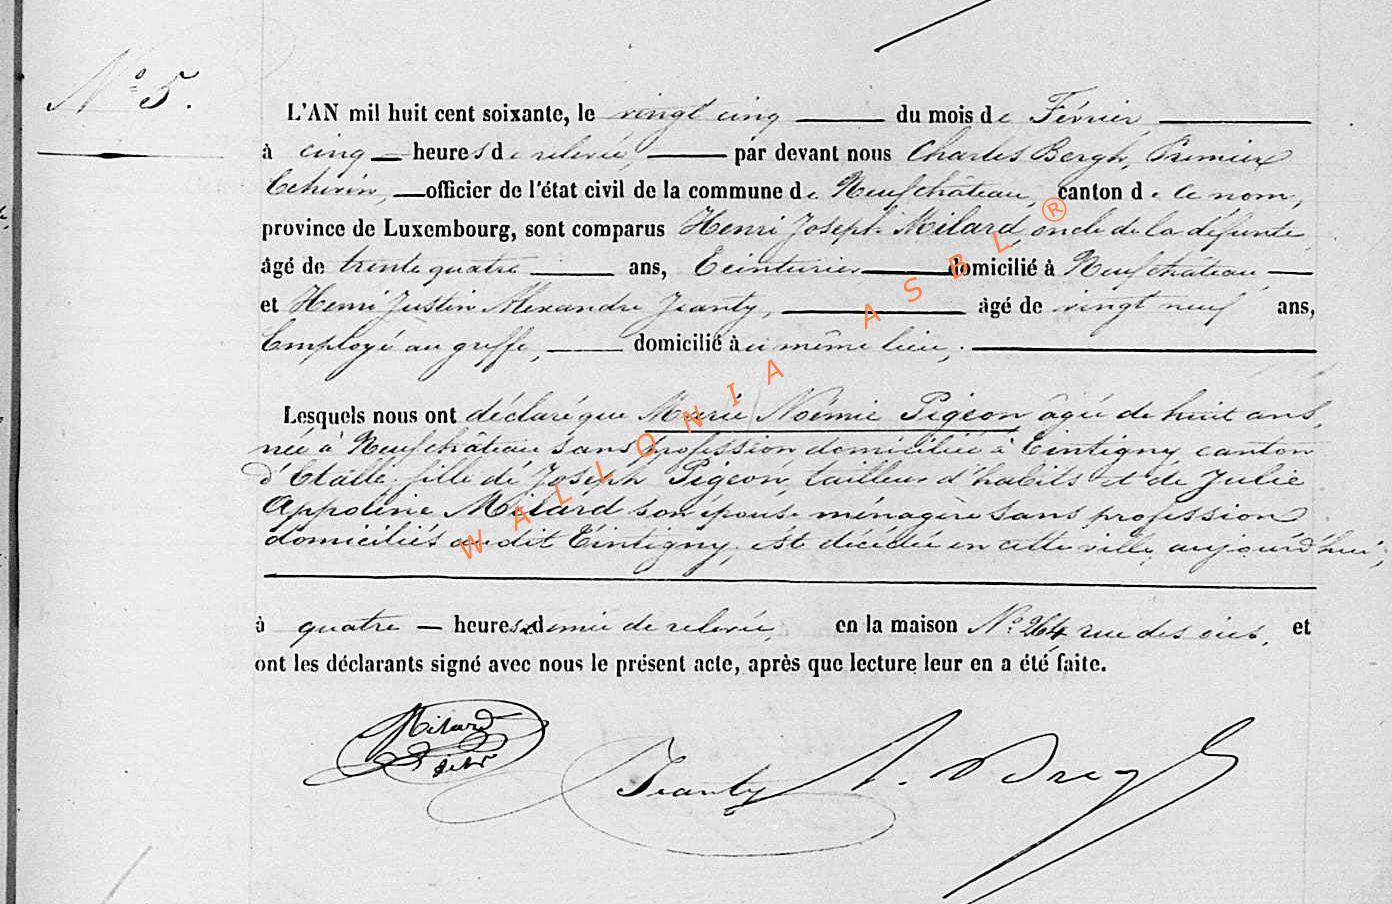 N° 5.
L'AN mil huit cent soixante, le vingt cinq du mois de Février
à cinq heures de relevée, par devant nous Charles Bergh, Premier
Echevin, officier de l'état civil de la commune de Neufchâteau, canton de ce nom,
province de Luxembourg, sont comparus Henri Joseph Milard, oncle de la défunte,
âgé de trente quatre ans, Teinturier domicilié à Neufchâteau,
et Henri Justin Alexandre Jeanty, âgé de vingt neuf ans,
Employé au greffe, domicilié à ci même lieu,
Lesquels nous ont déclaré que Marie Noémie Pigeon âgée de huit ans,
née à Neufchâteau sans profession domiciliée à Tintigny canton
d'Etalle, fille de Joseph Pigeon, tailleur d'habits et de Julie
Appoline Milard son épouse ménagère sans profession
domiciliés audit Tintigny, est décédée en cette ville aujourd'hui,
à quatre heures et demie de relevée, en la maison N° 264 rue des oies, et
ont les déclarants signé avec nous le présent acte, après que lecture leur en a été faite.
Milard
Jeanty
WALLONIA ASBL ®